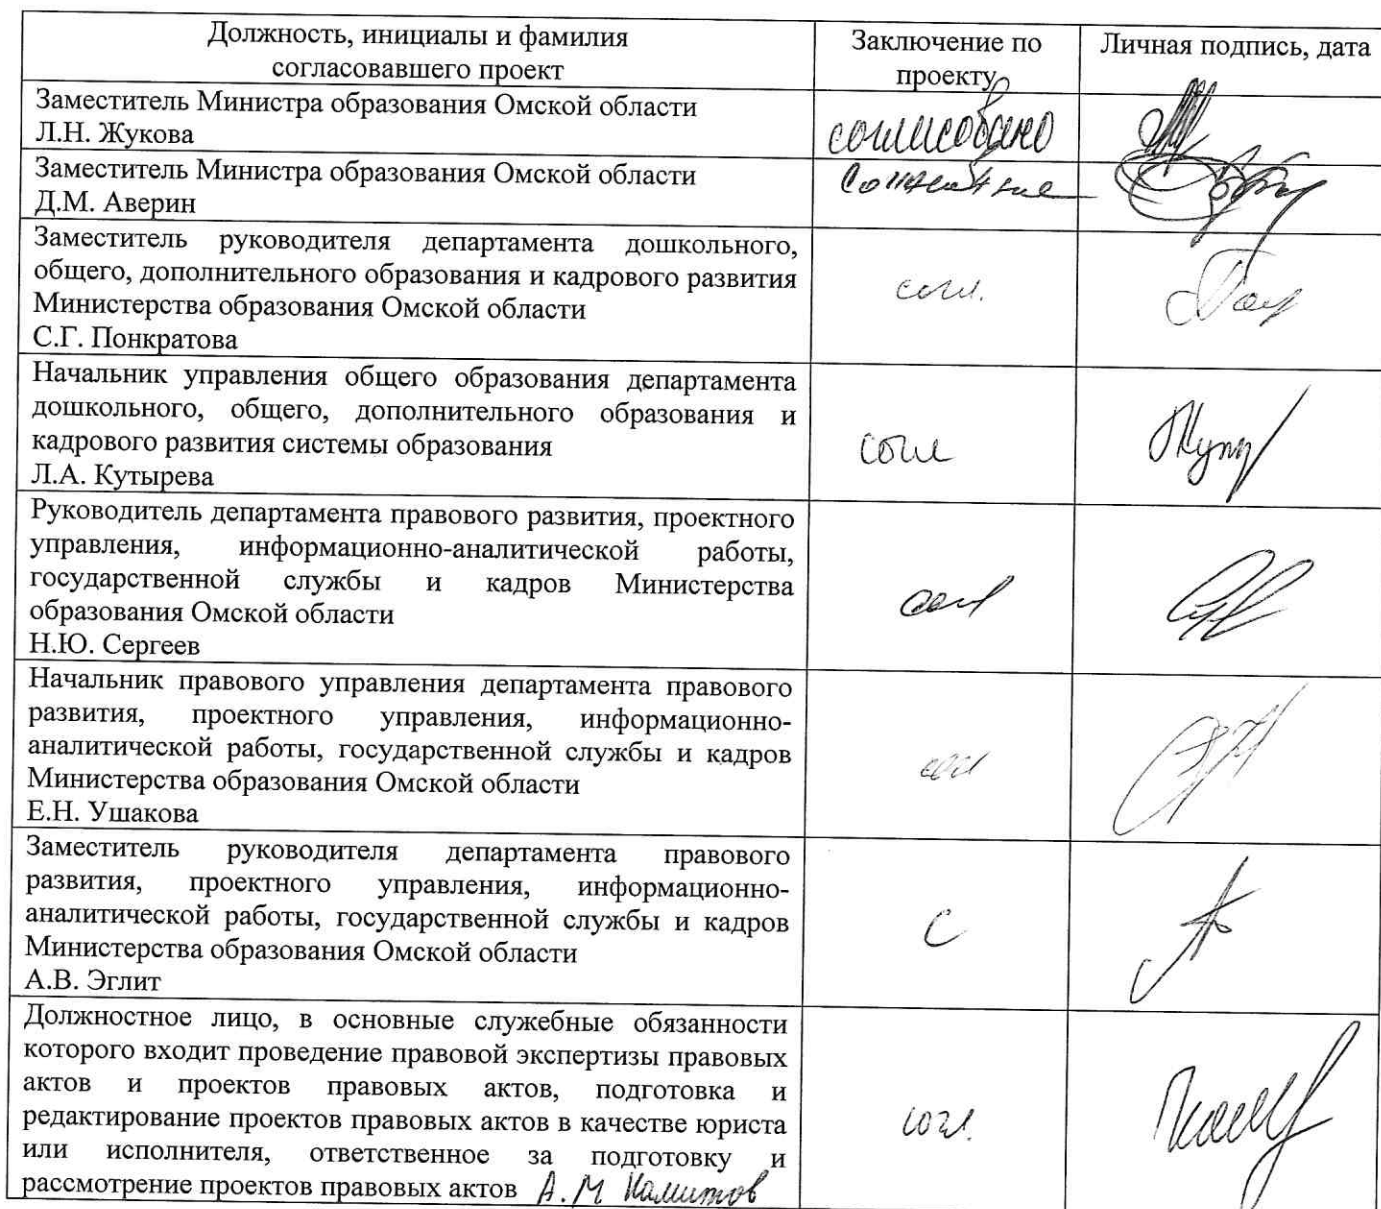 Должность, инициалы и фамилия
согласовавшего проект
Заключение по
проекту
Личная подпись, дата
Заместитель Министра образования Омской области
Л.Н. Жукова
согласовано
Заместитель Министра образования Омской области
Д.М. Аверин
Заместитель руководителя департамента дошкольного,
общего, дополнительного образования и кадрового развития
Министерства образования Омской области
С.Г. Понкратова
согл.
Начальник управления общего образования департамента
дошкольного, общего, дополнительного образования и
кадрового развития системы образования
Л.А. Кутырева
согл
Руководитель департамента правового развития, проектного
управления, информационно-аналитической работы,
государственной службы и кадров Министерства
образования Омской области
Н.Ю. Сергеев
согл
Начальник правового управления департамента правового
развития, проектного управления, информационно-
аналитической работы, государственной службы и кадров
Министерства образования Омской области
Е.Н. Ушакова
согл
Заместитель руководителя департамента правового
развития, проектного управления, информационно-
аналитической работы, государственной службы и кадров
Министерства образования Омской области
А.В. Эглит
С
Должностное лицо, в основные служебные обязанности
которого входит проведение правовой экспертизы правовых
актов и проектов правовых актов, подготовка и
редактирование проектов правовых актов в качестве юриста
или исполнителя, ответственное за подготовку и
рассмотрение проектов правовых актов А.М
согл.